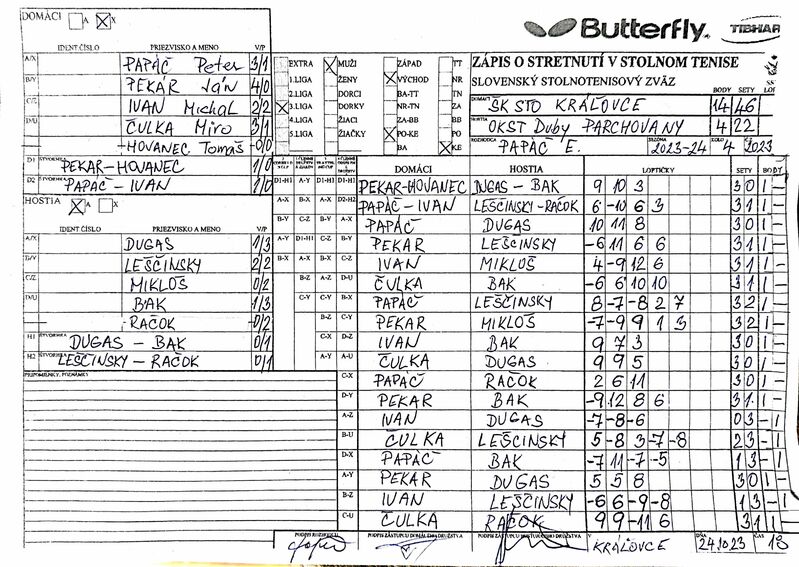 DOMÁCI A X
Butterfly TIBHAR
IDENT.ČÍSLO PRIEZVISKO A MENO V/P
A/X PAPÁČ Peter 3/1
B/Y PEKÁR Ján 4/0
C/Z IVAN Michal 2/2
D/U ČULKA Miro 3/1
HOVANEC Tomáš 0/0
D1 ŠTVORHRA PEKAR-HOVANEC 1/0
D2 ŠTVORHRA PAPÁČ - IVAN 1/0
EXTRA MUŽI ZÁPAD TT
1.LIGA ŽENY VÝCHOD NR
2.LIGA DORCI BA-TT TN
3.LIGA DORKY NR-TN ZA
4.LIGA ŽIACI ZA-BB BB
5.LIGA ŽIAČKY PO-KE PO
BA KE
ZÁPIS O STRETNUTÍ V STOLNOM TENISE
SLOVENSKÝ STOLNOTENISOVÝ ZVÄZ
BODY SETY
DOMÁCI ŠK STO KRÁĽOVCE 14 46
HOSTIA OKST Duby PARCHOVANY 4 22
ROZHODCA PAPÁČ E. SEZÓNA 2023-24 KOLO 4 2023
HOSTIA A X
IDENT.ČÍSLO PRIEZVISKO A MENO V/P
A/X DUGAS 1/3
B/Y LEŠČINSKY 2/2
C/Z MIKLOŠ 0/2
D/U BAK 1/3
RAČOK 0/2
H1 ŠTVORHRA DUGAS - BAK 0/1
H2 ŠTVORHRA LEŠČINSKY - RAČOK 0/1
PRIPOMIENKY, POZNÁMKY
DOMÁCI HOSTIA LOPTIČKY SETY BODY
D1-H1 A-Y D1-H1 D1-H1 PEKAR-HOVANEC DUGAS - BAK 9 10 3 3 0 1 -
A-X B-X A-X D2-H2 PAPÁČ - IVAN LEŠČINSKY-RAČOK 6 -10 6 3 3 1 1 -
B-Y C-Z B-Y A-X PAPÁČ DUGAS 10 11 8 3 0 1 -
A-Y D1-H1 C-Z B-Y PEKAR LEŠČINSKY -6 11 6 6 3 1 1 -
B-X A-X A-Y C-Z IVAN MIKLOŠ 4 -9 12 6 3 1 1 -
B-Z A-Z D-U ČULKA BAK -6 6 10 10 3 1 1 -
C-Y C-Y B-X PAPÁČ LEŠČINSKY 8 -7 -8 2 7 3 2 1 -
B-Z C-Y PEKAR MIKLOŠ -7 -9 9 1 3 3 2 1 -
C-X D-Z IVAN BAK 9 7 3 3 0 1 -
A-Y A-U ČULKA DUGAS 9 9 5 3 0 1 -
C-X PAPÁČ RAČOK 2 6 11 3 0 1 -
D-Y PEKAR BAK -9 12 8 6 3 1 1 -
A-Z IVAN DUGAS -7 -8 -6 0 3 - 1
B-U ČULKA LEŠČINSKY 5 -8 3 -7 -8 2 3 - 1
D-X PAPÁČ BAK -7 11 -7 -5 1 3 - 1
A-Y PEKAR DUGAS 5 5 8 3 0 1 -
B-Z IVAN LEŠČINSKY -6 6 -9 -8 1 3 - 1
C-U ČULKA RAČOK 9 9 -11 6 3 1 1 -
PODPIS ROZHODCU PODPIS ZÁSTUPCU DOMÁCEHO DRUŽSTVA PODPIS ZÁSTUPCU HOSŤUJÚCEHO DRUŽSTVA V KRÁĽOVCE DŇA 24.10.23 ČAS 18